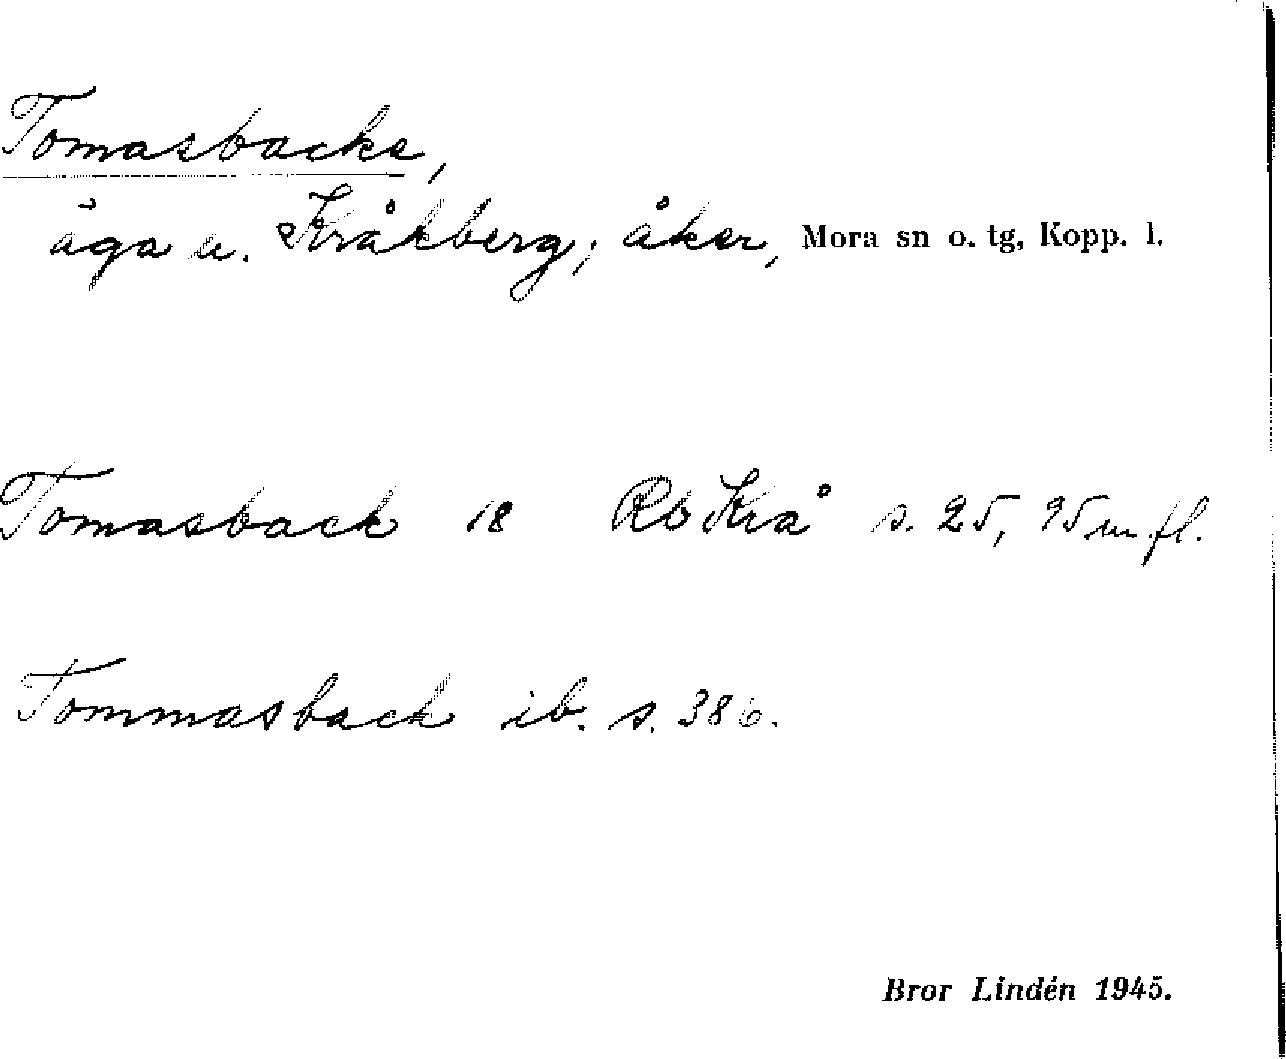 Tomasbacke,
äga u. Kråkberg; åker, Mora sn o. tg, Kopp. l.
Tomasback 18 Rb Krå s. 25, 95 m.fl.
Tommasback ib. s. 386.
Bror Lindén 1945.